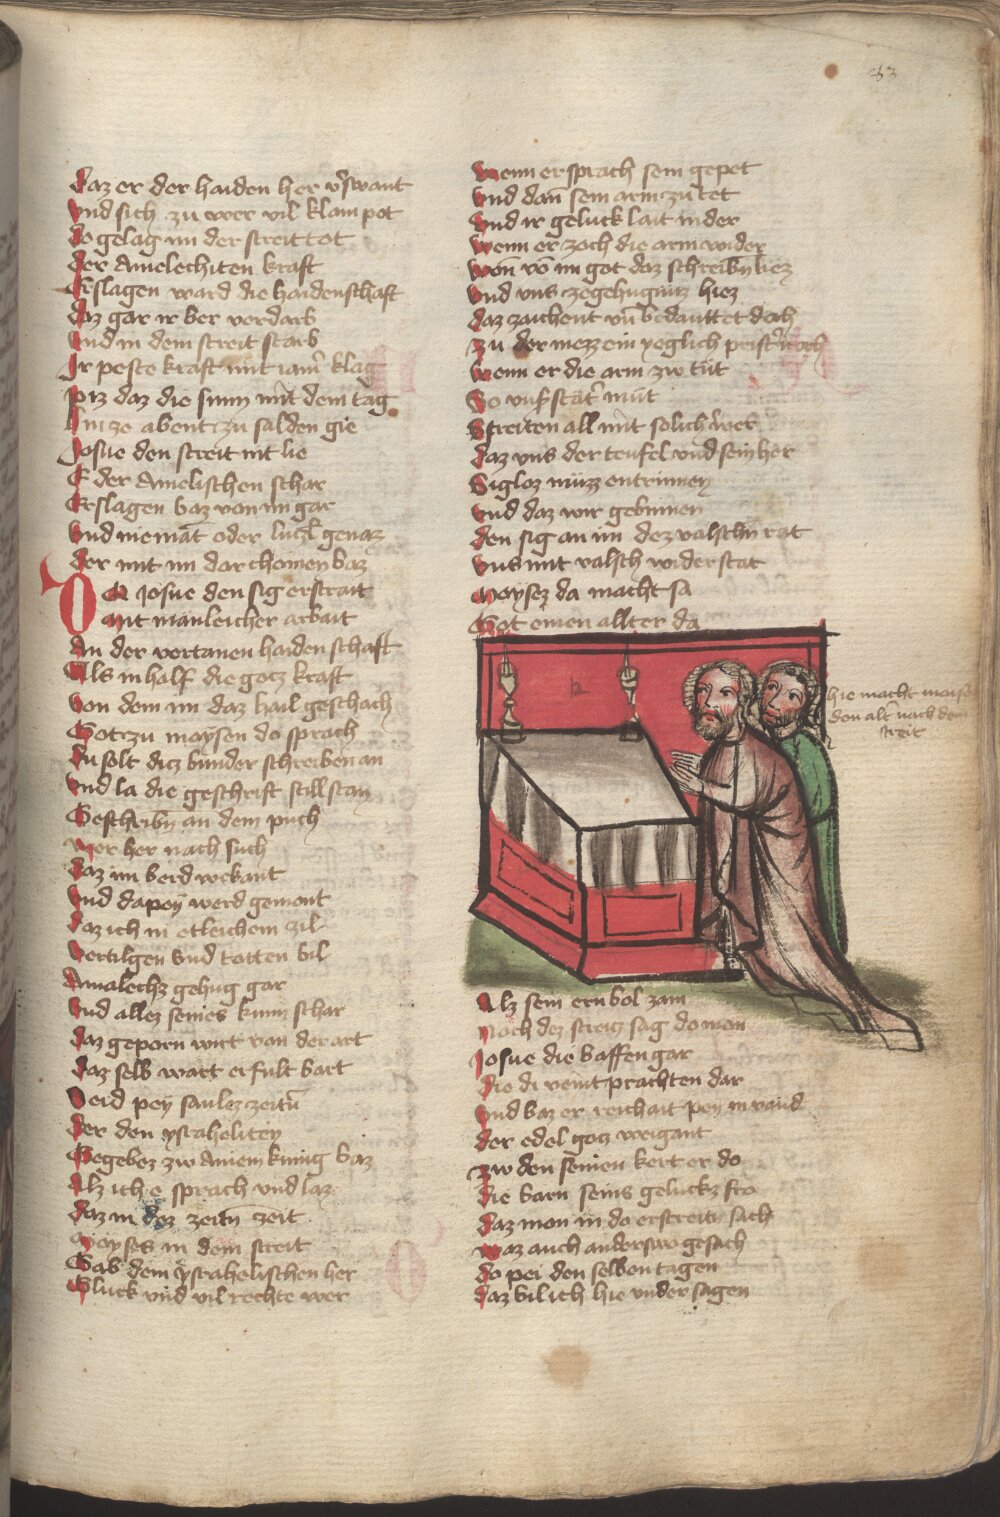 83
daz er der haiden her v̉swant
Vnd sich zu wer vil klain pot
do gelag im der streit tot
der Amelechiten kraft
Erslagen ward die haidenschaft
daz gar ir her verdarb
Vnd in dem streit starb
Ir peste kraft mit iam̉ klag
piz daz die sunn mit dem tag
hincze abent zu salden gie
Josue den streit nit lie
E der Amelischen schar
Erslagen waz von im gar
Vnd niemāt oder luczl̉ genaz
der mit im dar chomen waz
DO Josue den sig erstrait
mit manleicher arbait
An der vertanen haidenschaft
Als in half die gotz kraft
Von dem im daz hail geschach
Got zu moysen do sprach
du solt dicz wunder schreiben an
Vnd la die geschrift still stan
Geschribn̄ an dem puch
Wer her nach such
daz im werd wekant
Vnd dapey werd gemont
daz ich in etleichem zil
Vertilgen vnd totten wil
Amalechz gehug gar
Vnd allez seines kunn schar
daz geporn wirt von der art
daz selb wart erfult wart
Seid pey saulez zeitn̄
der den ysraheliten
Gegebez zw Aniem kunig waz
Alz ich e sprach vnd laz
daz in dez zeitn̄ zeit
Moyses in dem streit
Gab dem ysrahelischen her
Gluck vnd vil rechte wer
Wenn er sprach sein gepet
Vnd dan̄ sein arm zu tet
Vnd ir geluck lait nider
Wenn er zoch die arm wider
Won vō im got daz schreibn̄ liez
Vnd vns ze gehugnuz hiez
daz zaichent vn̄ bedauttet doch
zu der mezz ein yeglich prist̉ noch
Wenn er die arm zw tut
So vnf stat̉ mut
Streiten all mit solich̉ wer
daz vns der teufel vnd sein her
Sigloz muzz entrinnen
Vnd daz wir gebinnen
den sig an im dez valschn̄ rat
Vns mit valsch widerstat
Moysez da macht sa
Got einen allter da
hie macht moises
den alt̉ nach dem
streit
Alz sein ern wol zam
Nach dez streitz sag do man
Josue die waffen gar
die di veint prachten dar
Vnd waz er reichait pey in vand
der edel gotz weigant
zw den seinen kert er do
die warn seins geluckz fro
daz man in do erstreitn̄ sach
Waz auch anderswo geschach
do pei den selben tagen
daz wil ich hie vnder sagen